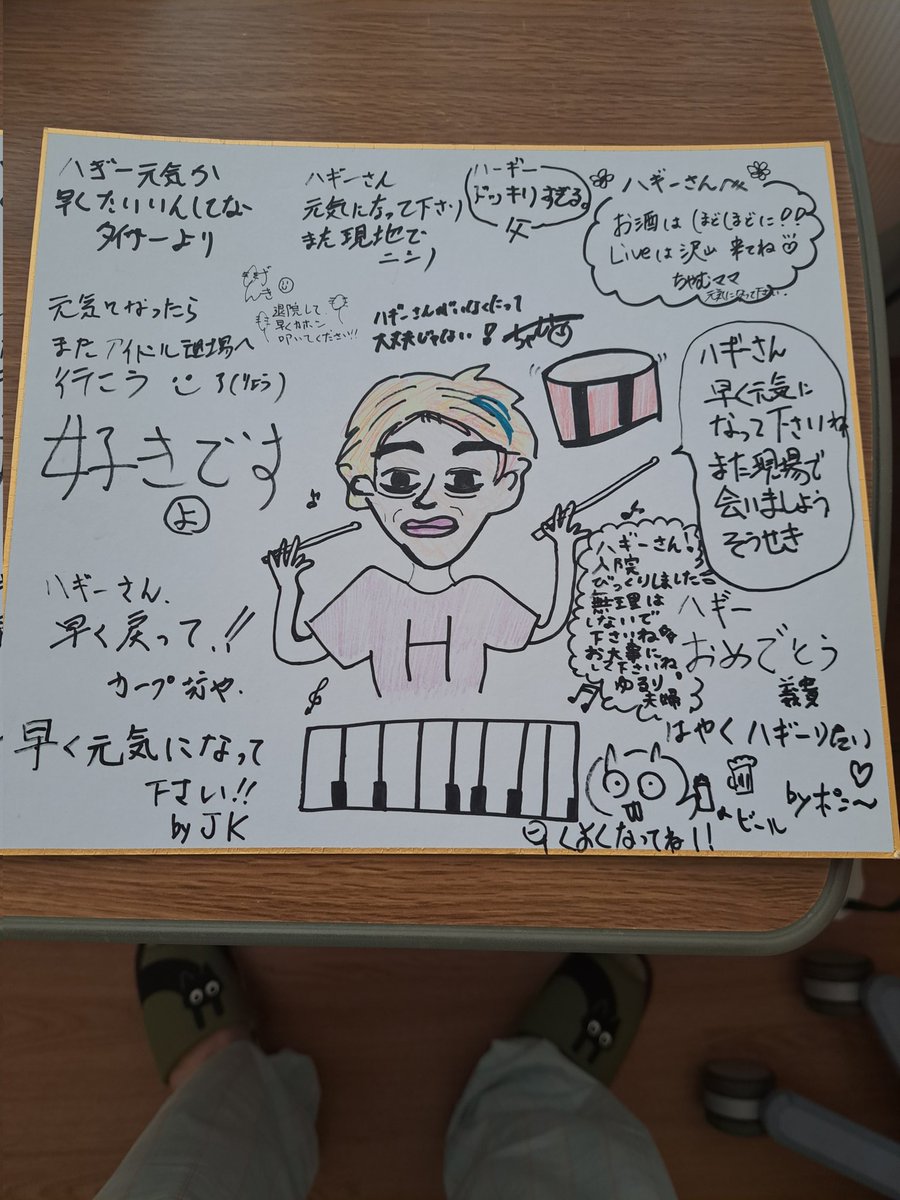 ハギー元気か
早くたいいんしてな
タイサーより
ハギーさん
元気になって下さい
また現地で
ニシノ
ハーギー
ドッキリすぎる。
父
ハギーさん
お酒はほどほどに!!
Liveは沢山来てね♡
ちゃむママ
元気になって下さい
げんき
退院して
早くカホン
叩いてください!!
ハギーさんがいなくたって
大丈夫じゃない!
元気になったら
またアイドル現場へ
行こう
(りょう)
好きです
よ
ハギーさん
早く元気に
なって下さいね
また現場で
会いましょう
そうせき
ハギーさん!
入院
びっくりしました
無理は
しないで
下さいね
お大事に
して下さいね。
ゆるり。
夫婦
ハギーさん、
早く戻って!!
カープ坊や.
H
ハギー
おめでとう
義貴
はやくハギーりたい
♡
byポニ〜
早く元気になって
下さい!!
by JK
ビール
くなってね!!